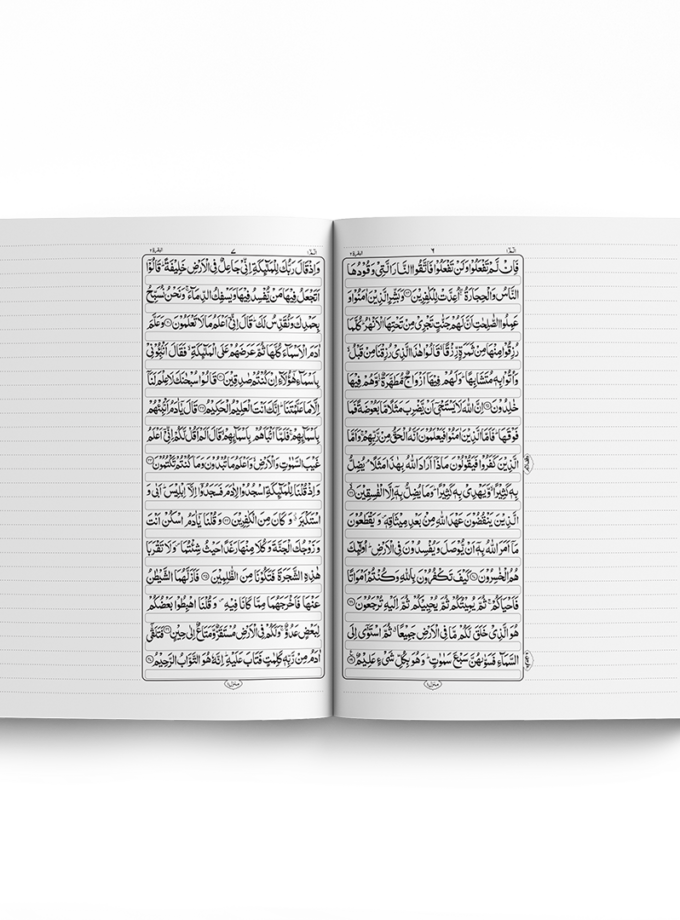 البقرة ٢
٦
الٓمّٓ ١
فَاِنْ لَّمْ تَفْعَلُوْا وَلَنْ تَفْعَلُوْا فَاتَّقُوا النَّارَ الَّتِيْ وَقُوْدُهَا
النَّاسُ وَالْحِجَارَةُ ۖۚ اُعِدَّتْ لِلْكٰفِرِيْنَ ۝٢٤ وَبَشِّرِ الَّذِيْنَ اٰمَنُوْا وَ
عَمِلُوا الصّٰلِحٰتِ اَنَّ لَهُمْ جَنّٰتٍ تَجْرِيْ مِنْ تَحْتِهَا الْاَنْهٰرُ ؕ كُلَّمَا
رُزِقُوْا مِنْهَا مِنْ ثَمَرَةٍ رِّزْقًا ۙ قَالُوْا هٰذَا الَّذِيْ رُزِقْنَا مِنْ قَبْلُ ۙ
وَاُتُوْا بِهٖ مُتَشَابِهًا ؕ وَلَهُمْ فِيْهَاۤ اَزْوَاجٌ مُّطَهَّرَةٌ ۙۗ وَّهُمْ فِيْهَا
خٰلِدُوْنَ ۝٢٥ اِنَّ اللّٰهَ لَا يَسْتَحْيٖۤ اَنْ يَّضْرِبَ مَثَلًا مَّا بَعُوْضَةً فَمَا
فَوْقَهَا ؕ فَاَمَّا الَّذِيْنَ اٰمَنُوْا فَيَعْلَمُوْنَ اَنَّهُ الْحَقُّ مِنْ رَّبِّهِمْ ۚ وَاَمَّا
الَّذِيْنَ كَفَرُوْا فَيَقُوْلُوْنَ مَاذَاۤ اَرَادَ اللّٰهُ بِهٰذَا مَثَلًا ۘ يُضِلُّ
بِهٖ كَثِيْرًا ۙ وَّيَهْدِيْ بِهٖ كَثِيْرًا ؕ وَمَا يُضِلُّ بِهٖۤ اِلَّا الْفٰسِقِيْنَ ۝٢٦
الَّذِيْنَ يَنْقُضُوْنَ عَهْدَ اللّٰهِ مِنْۢ بَعْدِ مِيْثَاقِهٖ ۪ وَيَقْطَعُوْنَ
مَاۤ اَمَرَ اللّٰهُ بِهٖۤ اَنْ يُّوْصَلَ وَيُفْسِدُوْنَ فِي الْاَرْضِ ؕ اُولٰٓئِكَ
هُمُ الْخٰسِرُوْنَ ۝٢٧ كَيْفَ تَكْفُرُوْنَ بِاللّٰهِ وَكُنْتُمْ اَمْوَاتًا
فَاَحْيَاكُمْ ۚ ثُمَّ يُمِيْتُكُمْ ثُمَّ يُحْيِيْكُمْ ثُمَّ اِلَيْهِ تُرْجَعُوْنَ ۝٢٨
هُوَ الَّذِيْ خَلَقَ لَكُمْ مَّا فِي الْاَرْضِ جَمِيْعًا ۗ ثُمَّ اسْتَوٰۤى اِلَى
السَّمَآءِ فَسَوّٰىهُنَّ سَبْعَ سَمٰوٰتٍ ؕ وَهُوَ بِكُلِّ شَيْءٍ عَلِيْمٌ ۝٢٩
منزل ١
البقرة ٢
٧
الٓمّٓ ١
وَاِذْ قَالَ رَبُّكَ لِلْمَلٰٓئِكَةِ اِنِّيْ جَاعِلٌ فِي الْاَرْضِ خَلِيْفَةً ؕ قَالُوْۤا
اَتَجْعَلُ فِيْهَا مَنْ يُّفْسِدُ فِيْهَا وَيَسْفِكُ الدِّمَآءَ ۚ وَنَحْنُ نُسَبِّحُ
بِحَمْدِكَ وَنُقَدِّسُ لَكَ ؕ قَالَ اِنِّيْۤ اَعْلَمُ مَا لَا تَعْلَمُوْنَ ۝٣٠ وَعَلَّمَ
اٰدَمَ الْاَسْمَآءَ كُلَّهَا ثُمَّ عَرَضَهُمْ عَلَى الْمَلٰٓئِكَةِ ۙ فَقَالَ اَنْۢبِـُٔوْنِيْ
بِاَسْمَآءِ هٰٓؤُلَآءِ اِنْ كُنْتُمْ صٰدِقِيْنَ ۝٣١ قَالُوْا سُبْحٰنَكَ لَا عِلْمَ لَنَاۤ
اِلَّا مَا عَلَّمْتَنَا ؕ اِنَّكَ اَنْتَ الْعَلِيْمُ الْحَكِيْمُ ۝٣٢ قَالَ يٰۤاٰدَمُ اَنْۢبِئْهُمْ
بِاَسْمَآئِهِمْ ۚ فَلَمَّاۤ اَنْۢبَاَهُمْ بِاَسْمَآئِهِمْ ۙ قَالَ اَلَمْ اَقُلْ لَّكُمْ اِنِّيْۤ اَعْلَمُ
غَيْبَ السَّمٰوٰتِ وَالْاَرْضِ ۙ وَاَعْلَمُ مَا تُبْدُوْنَ وَمَا كُنْتُمْ تَكْتُمُوْنَ ۝٣٣
وَاِذْ قُلْنَا لِلْمَلٰٓئِكَةِ اسْجُدُوْا لِاٰدَمَ فَسَجَدُوْۤا اِلَّاۤ اِبْلِيْسَ ؕ اَبٰى وَ
اسْتَكْبَرَ ۗ وَكَانَ مِنَ الْكٰفِرِيْنَ ۝٣٤ وَقُلْنَا يٰۤاٰدَمُ اسْكُنْ اَنْتَ
وَزَوْجُكَ الْجَنَّةَ وَكُلَا مِنْهَا رَغَدًا حَيْثُ شِئْتُمَا ۪ وَلَا تَقْرَبَا
هٰذِهِ الشَّجَرَةَ فَتَكُوْنَا مِنَ الظّٰلِمِيْنَ ۝٣٥ فَاَزَلَّهُمَا الشَّيْطٰنُ
عَنْهَا فَاَخْرَجَهُمَا مِمَّا كَانَا فِيْهِ ۪ وَقُلْنَا اهْبِطُوْا بَعْضُكُمْ
لِبَعْضٍ عَدُوٌّ ۚ وَلَكُمْ فِي الْاَرْضِ مُسْتَقَرٌّ وَّمَتَاعٌ اِلٰى حِيْنٍ ۝٣٦ فَتَلَقّٰۤى
اٰدَمُ مِنْ رَّبِّهٖ كَلِمٰتٍ فَتَابَ عَلَيْهِ ؕ اِنَّهٗ هُوَ التَّوَّابُ الرَّحِيْمُ ۝٣٧
منزل ١